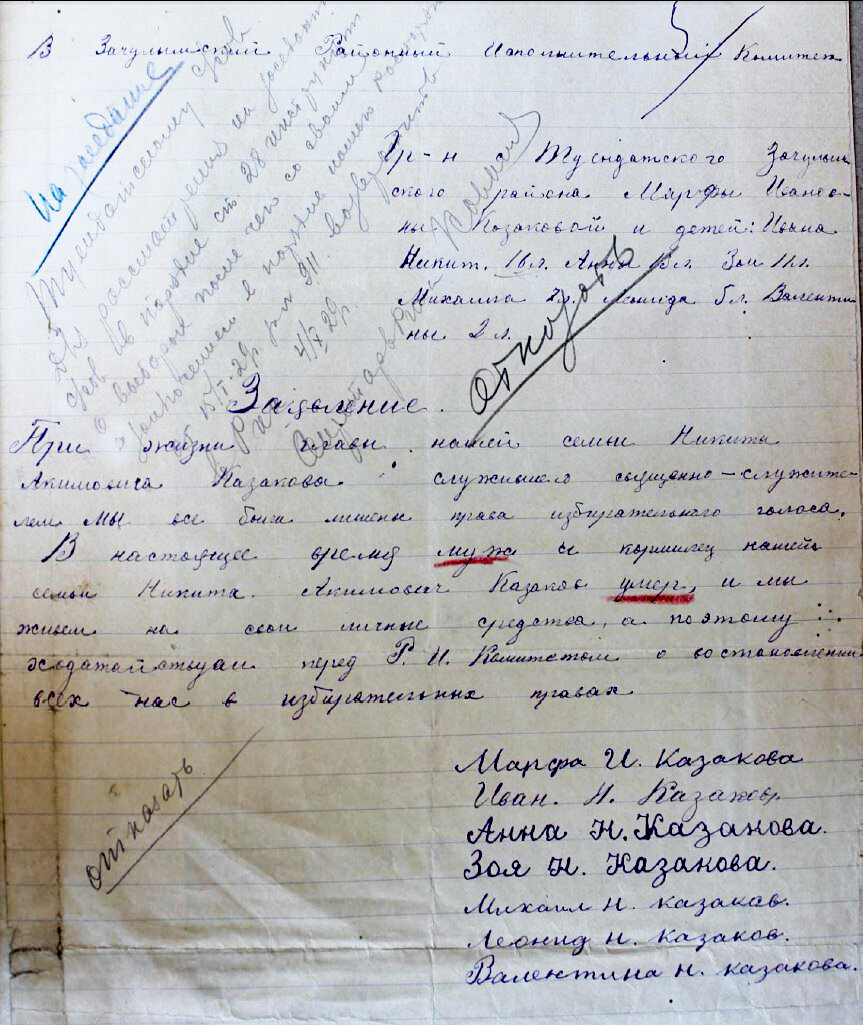 В Зачулымский Районный Исполнительный Комитет
На заседание
Гр-н с Туендатского Зачулым-
ского района Марфы Иванов-
ны Казаковой и детей: Ивана
Никит. 16 л. Анны 13 л. Зои 11 л.
Михаила 7 л. Леонида 5 л. Валенти-
ны 2 л.
Туендатскому
Для рассмотрения на заседании
в порядке ст 28 инструкции
о выборах после чего со своим
заключением в порядке
возвратить
4/X 29 г.
отказать
Заявление.
При жизни главы нашей семьи Никита
Акимовича Казакова служившего священно-служите-
лем мы все были лишены права избирательного голоса.
В настоящее время муж и кормилец нашей
семьи Никита Акимович Казаков умер, и мы
живем на свои личные средства, а поэтому
ходатайствуем перед Р. И. Комитетом о востановлении
всех нас в избирательных правах
Марфа И. Казакова
Иван. Н. Казаков.
Анна Н. Казакова.
Зоя Н. Казакова.
Михаил Н. Казаков.
Леонид Н. Казаков.
Валентина Н. Казакова.
отказать